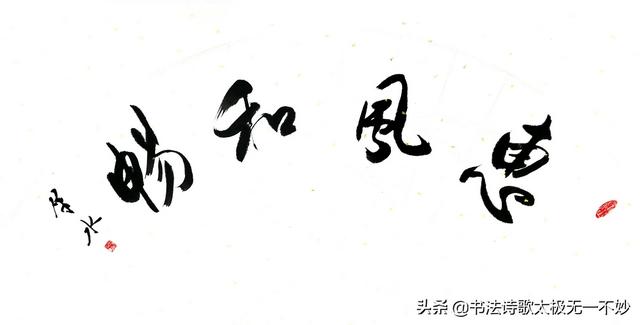 惠風和暢
头条 @书法诗歌太极无一不妙